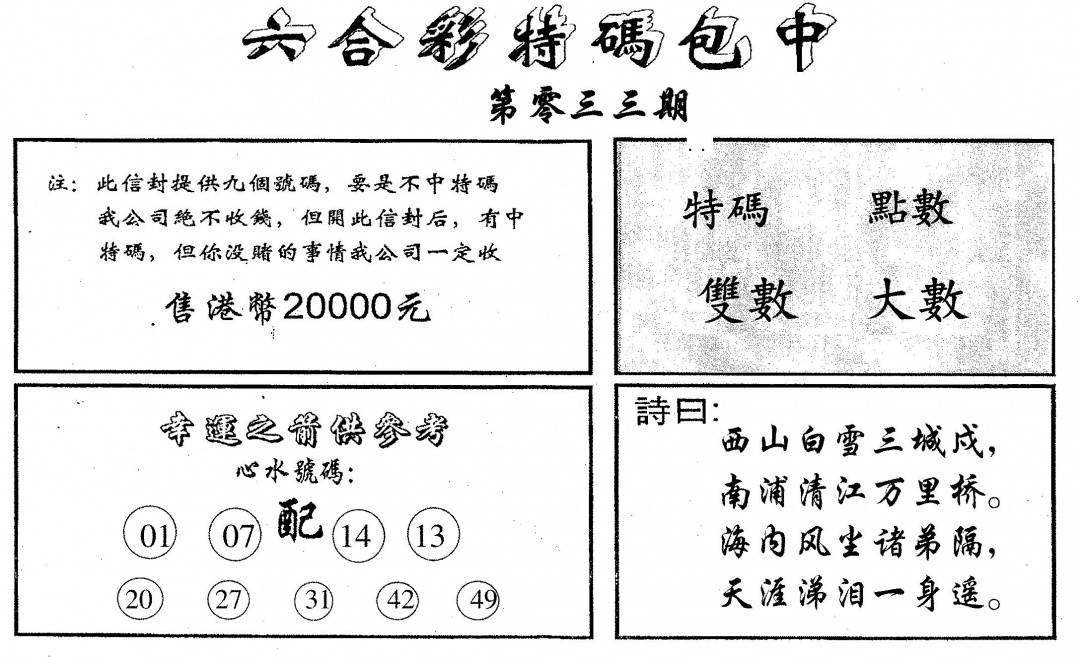 六合彩特碼包中
第零三三期
注：此信封提供九個號碼，要是不中特碼
我公司絕不收錢，但開此信封后，有中
特碼，但你没賭的事情我公司一定收
售港幣20000元
特碼 點數
雙數 大數
幸運之箭供參考
心水號碼：
01 07 配 14 13
20 27 31 42 49
詩曰：
西山白雪三城戍，
南浦清江万里桥。
海内风尘诸弟隔，
天涯涕泪一身遥。